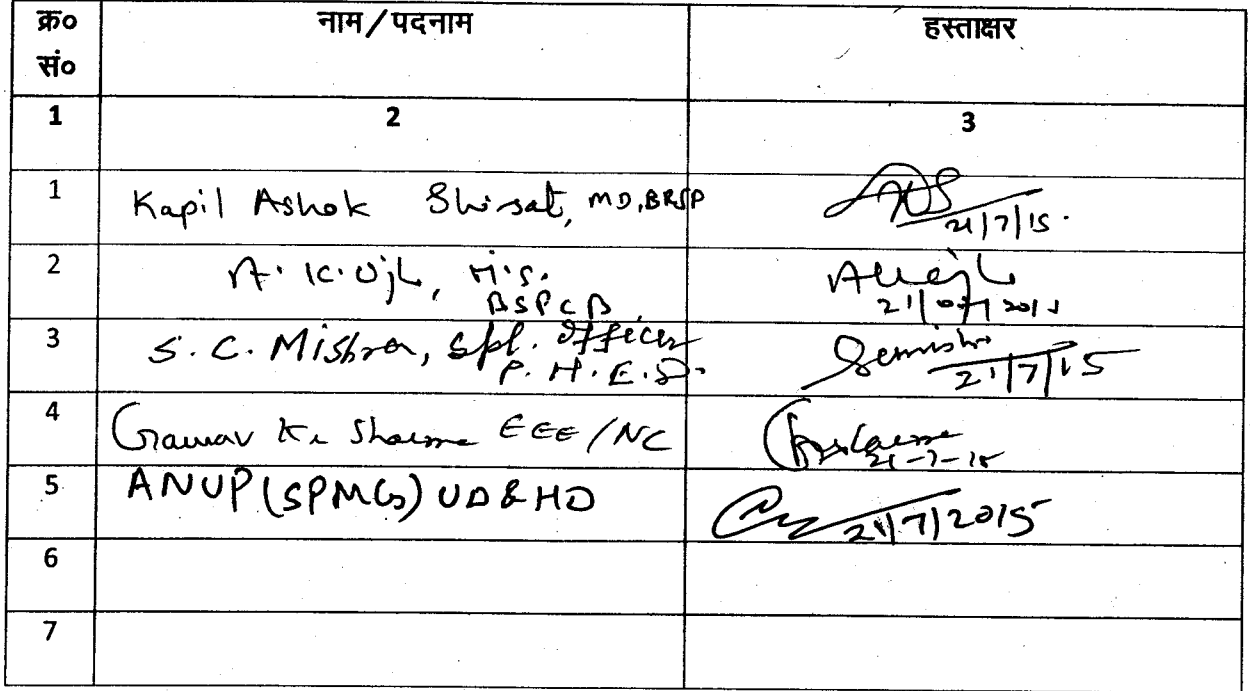 क्र० नाम/पदनाम हस्ताक्षर
सं०
1 2 3
1 Kapil Ashok Shirsat, MD, BRJP 21/7/15.
2 A. K. Ojh, M.S. 21/07/2015
BSPCB
3 S. C. Mishra, Spl. Officer 21/7/15
P. H. E. D.
4 Gaurav Kr Sharma EEE/NC 21-7-15
5 ANUP (SPMG) UD & HD 21/7/2015
6
7